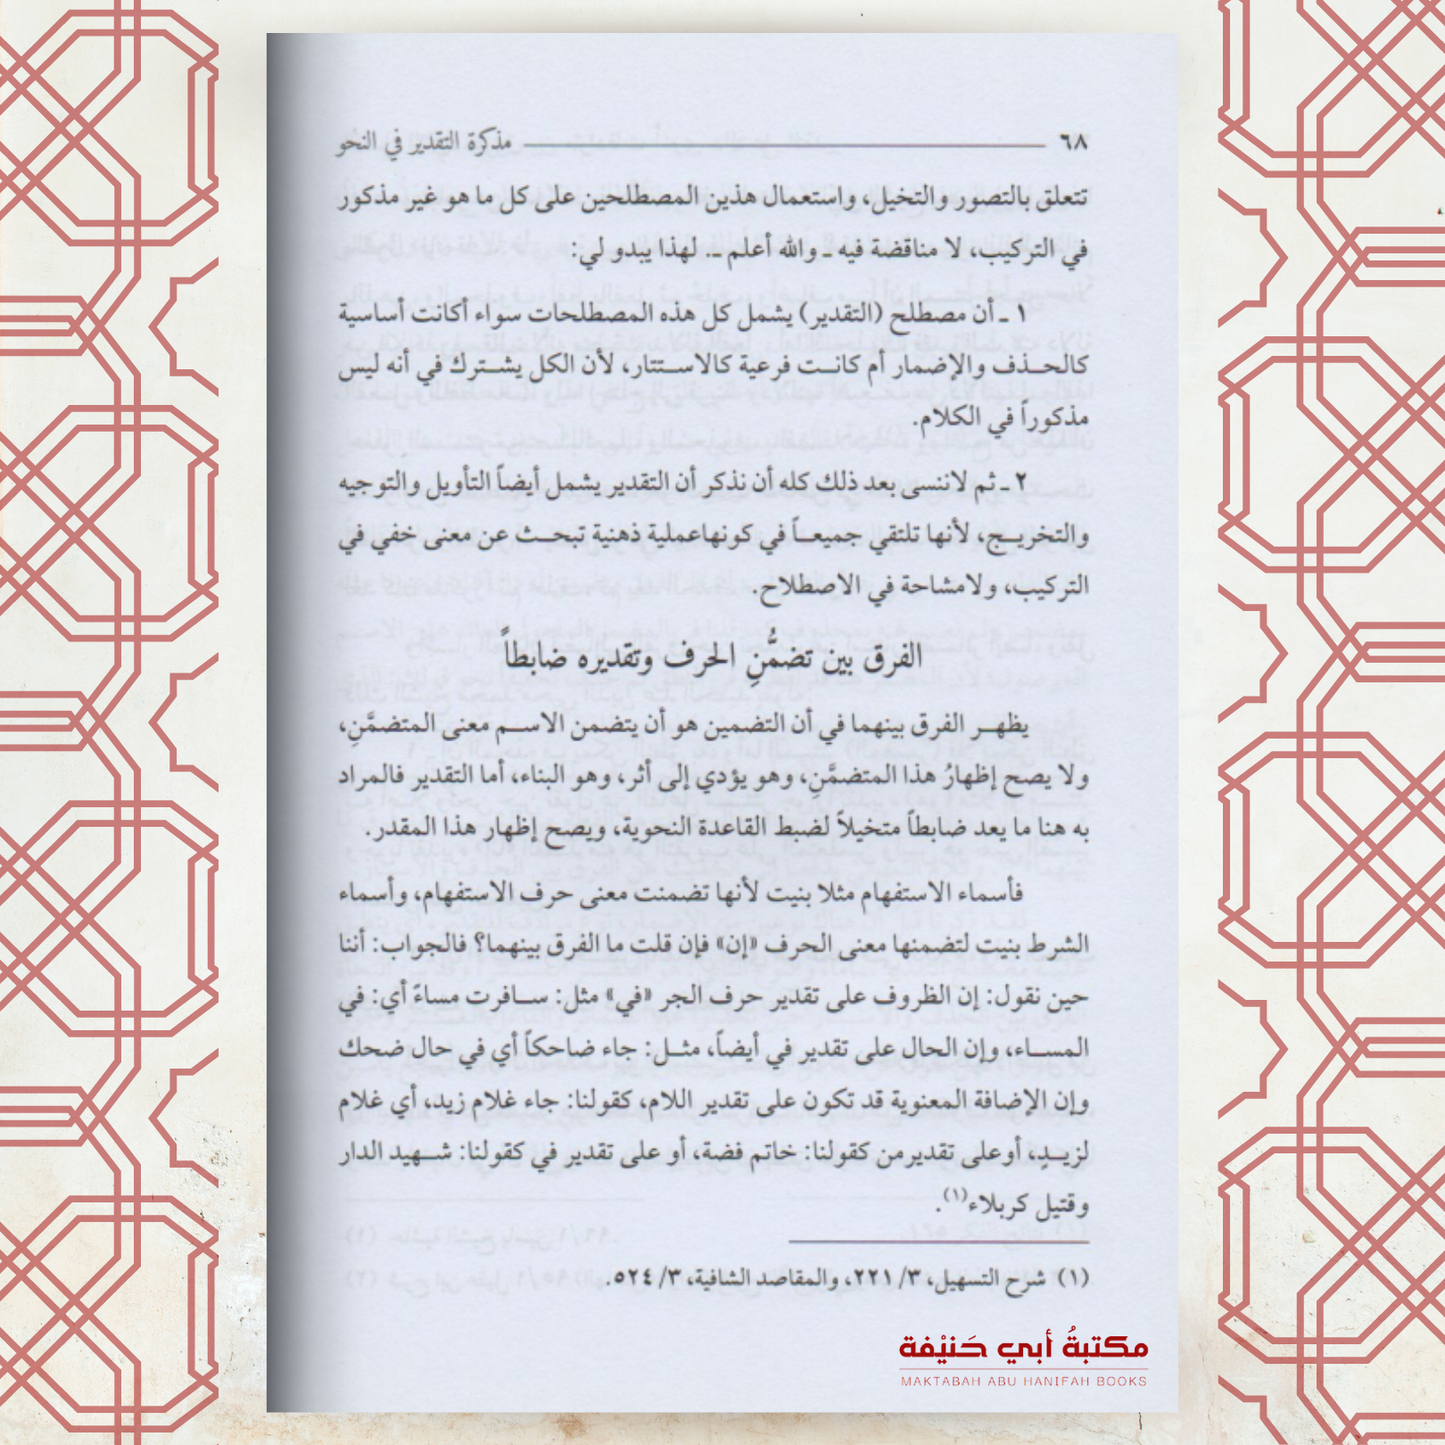 ٦٨ مذكرة التقدير في النحو
تتعلق بالتصور والتخيل، واستعمال هذين المصطلحين على كل ما هو غير مذكور
في التركيب، لا مناقضة فيه ـ والله أعلم ـ. لهذا يبدو لي:
١ ـ أن مصطلح (التقدير) يشمل كل هذه المصطلحات سواء أكانت أساسية
كالحذف والإضمار أم كانت فرعية كالاستتار، لأن الكل يشترك في أنه ليس
مذكوراً في الكلام.
٢ ـ ثم لاننسى بعد ذلك كله أن نذكر أن التقدير يشمل أيضاً التأويل والتوجيه
والتخريج، لأنها تلتقي جميعاً في كونهاعملية ذهنية تبحث عن معنى خفي في
التركيب، ولامشاحة في الاصطلاح.
الفرق بين تضمُّنِ الحرف وتقديره ضابطاً
يظهر الفرق بينهما في أن التضمين هو أن يتضمن الاسم معنى المتضمَّنِ،
ولا يصح إظهارُ هذا المتضمَّنِ، وهو يؤدي إلى أثر، وهو البناء، أما التقدير فالمراد
به هنا ما يعد ضابطاً متخيلاً لضبط القاعدة النحوية، ويصح إظهار هذا المقدر.
فأسماء الاستفهام مثلا بنيت لأنها تضمنت معنى حرف الاستفهام، وأسماء
الشرط بنيت لتضمنها معنى الحرف «إن» فإن قلت ما الفرق بينهما؟ فالجواب: أننا
حين نقول: إن الظروف على تقدير حرف الجر «في» مثل: سافرت مساءً أي: في
المساء، وإن الحال على تقدير في أيضاً، مثل: جاء ضاحكاً أي في حال ضحك
وإن الإضافة المعنوية قد تكون على تقدير اللام، كقولنا: جاء غلام زيد، أي غلام
لزيدٍ، أوعلى تقديرمن كقولنا: خاتم فضة، أو على تقدير في كقولنا: شهيد الدار
وقتيل كربلاء(١).
(١) شرح التسهيل، ٣/ ٢٢١، والمقاصد الشافية، ٣/ ٥٢٤.
مكتبةُ أبي حَنيْفة
MAKTABAH ABU HANIFAH BOOKS